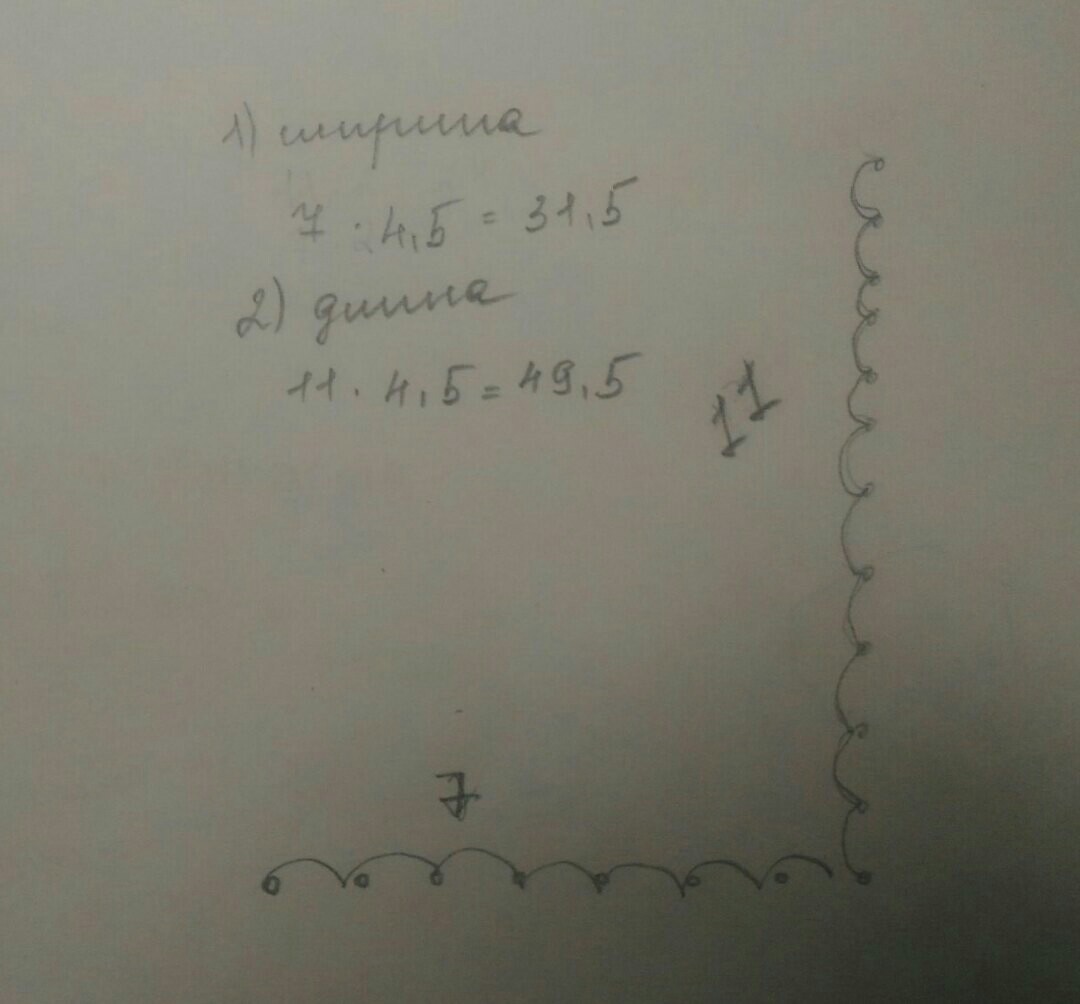 1) ширина
7 · 4,5 = 31,5
2) длина
11 · 4,5 = 49,5
11
7